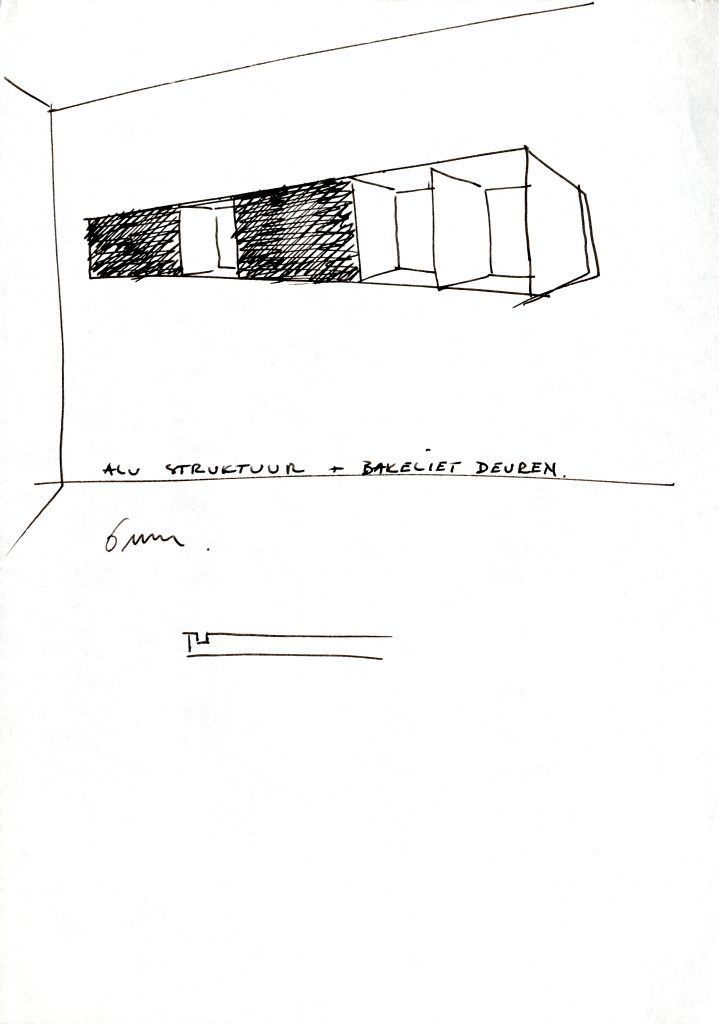 ALU STRUKTUUR + BAKELIET DEUREN.
6 mm.